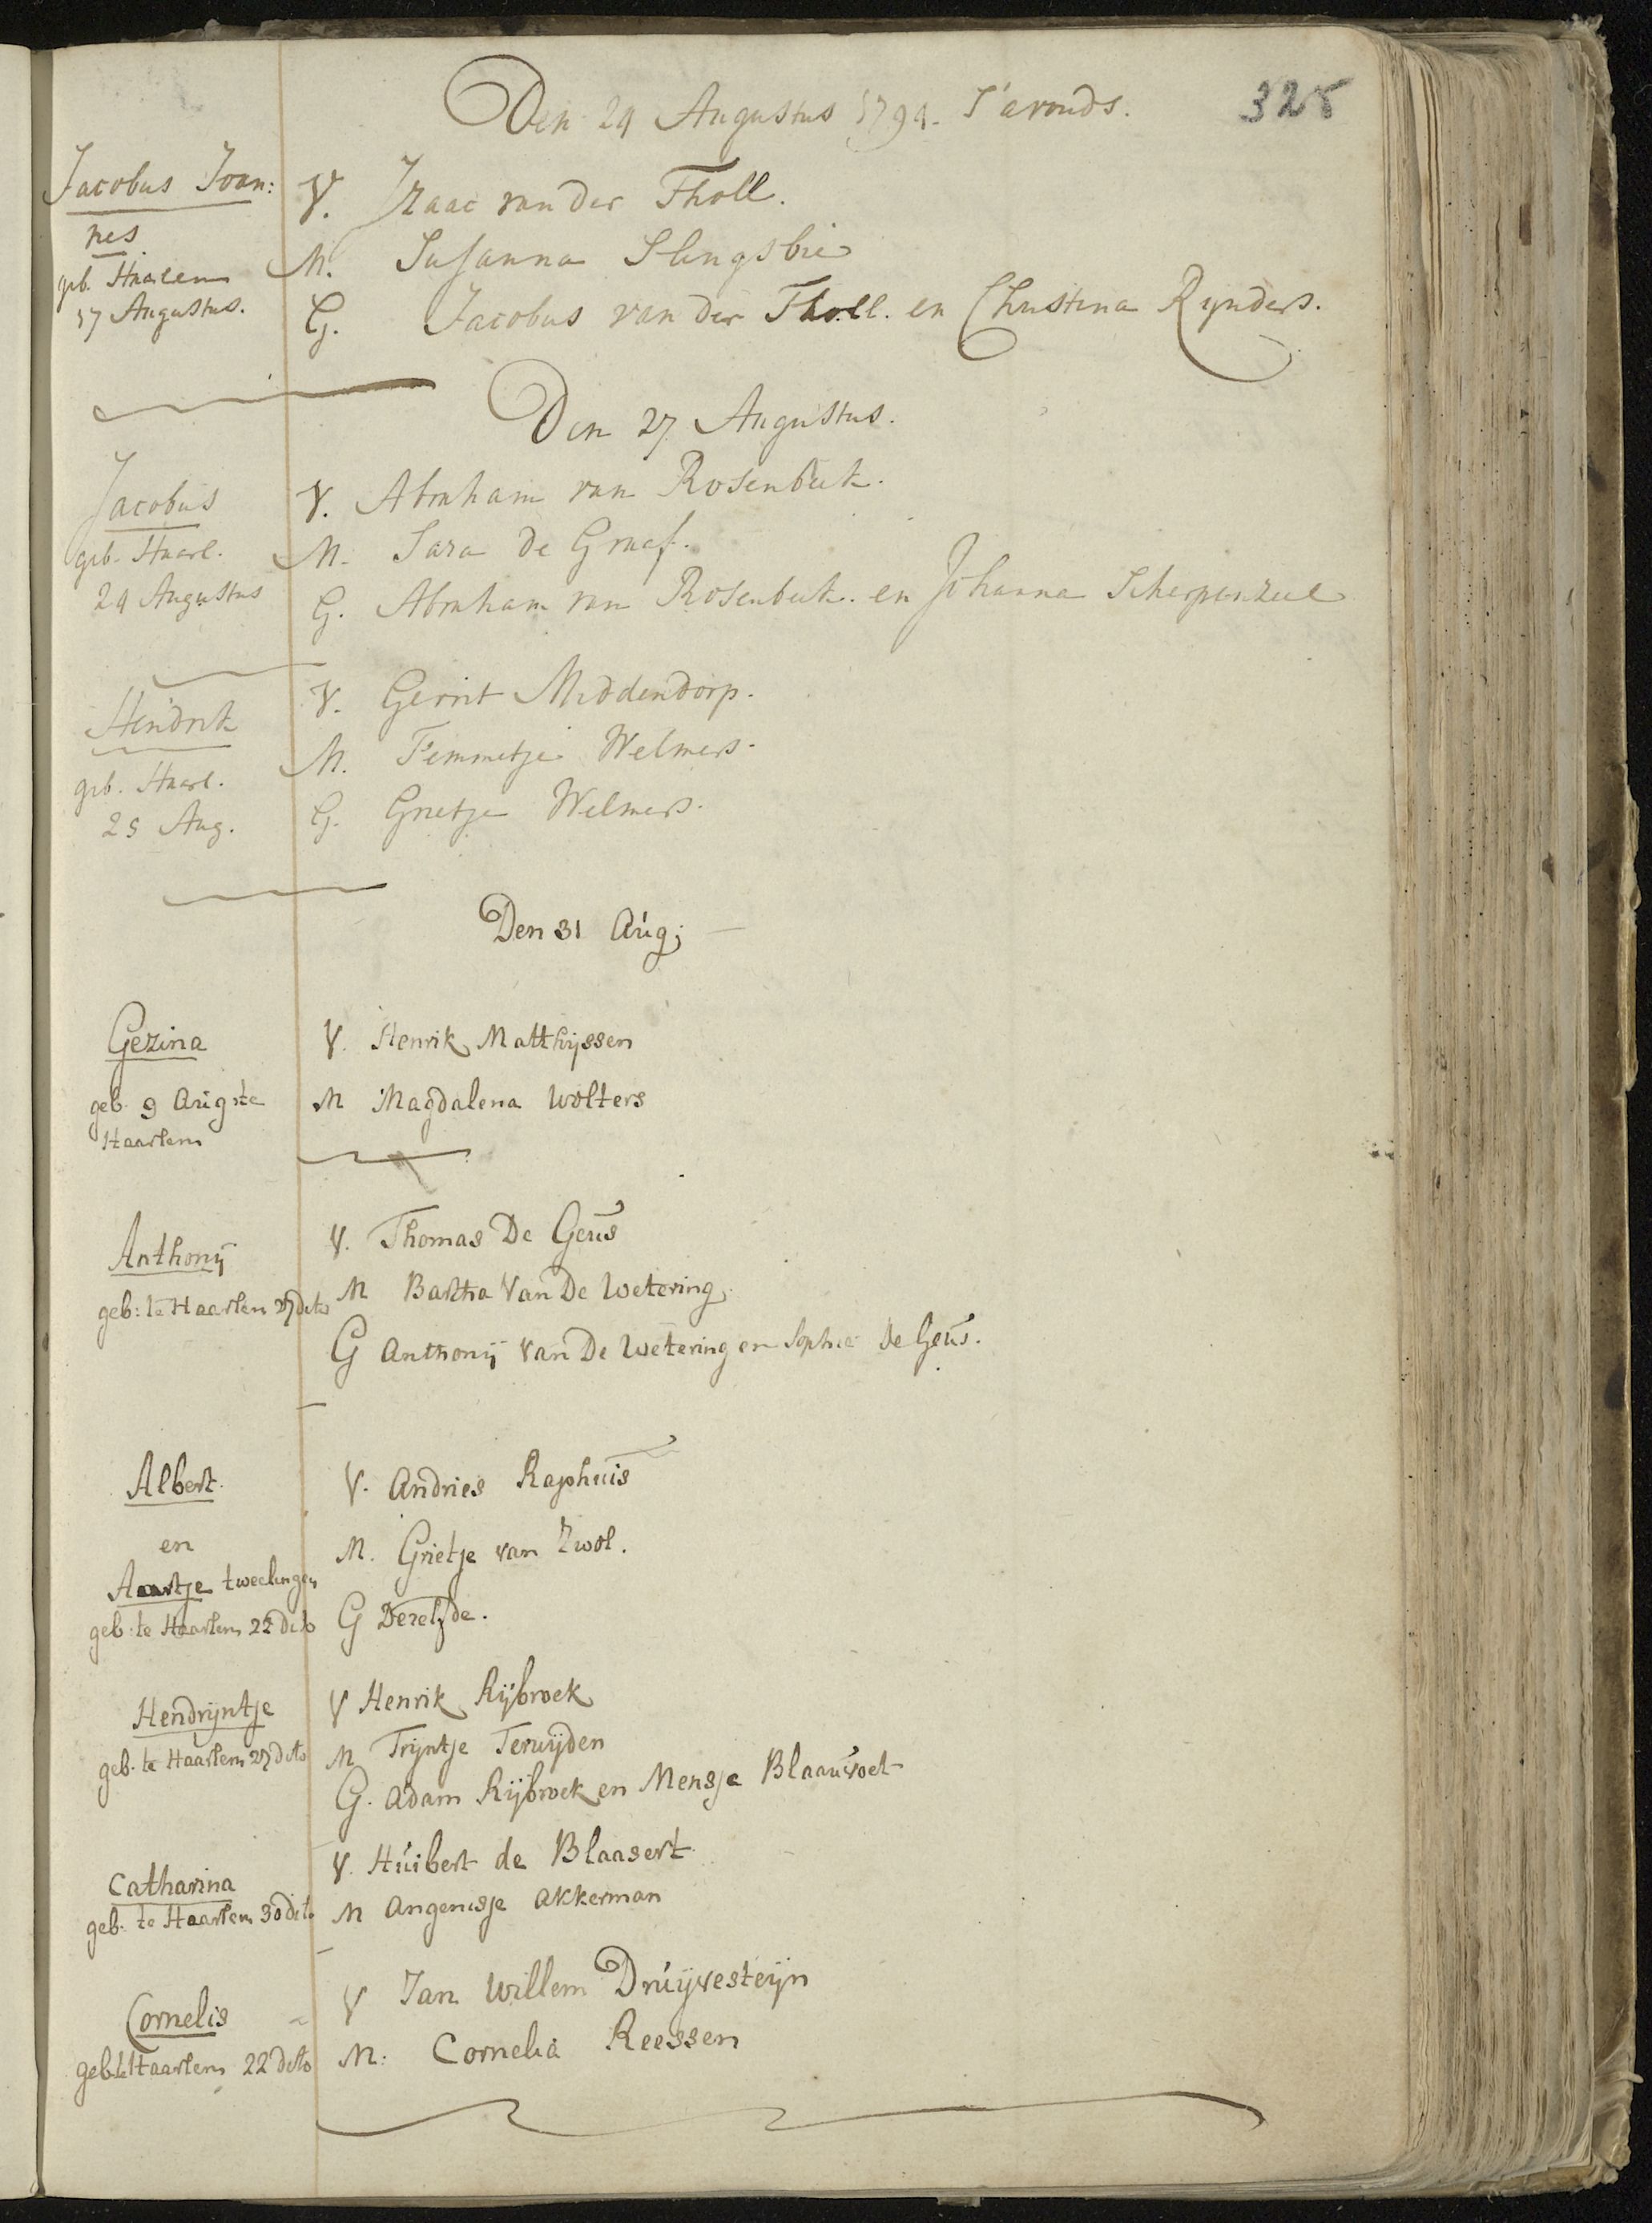 325
Den 24 Augustus 1794. S'avonds.
Jacobus Joan:
nes
geb. Haalem
17 Augustus.
V. Izaac van der Tholl.
M. Susanna Slengsbie
G. Jacobus van der Tholl. en Christina Rynders.
Den 27 Augustus.
Jacobus
geb. Haarl.
24 Augustus
V. Abraham van Rosenbeek.
M. Sara de Graaf.
G. Abraham van Rosenbeek. en Johanna Scherpenzeel
Hendrik
geb. Haarl.
25 Aug.
V. Gerrit Middendorp.
M. Femmetje Welmers.
G. Grietje Welmers.
Den 31 Aug;
Gezina
geb. 9 Aug te
Haarlem
V. Henrik Matthijssen
M Magdalena Wolters
Anthonij
geb: te Haarlem 27 dito
V. Thomas De Geus
M Bartha Van De Wetering
G Anthonij Van De Wetering en Sophie de Geus.
Albert
en
Aartje tweelingen
geb: te Haarlem 22 dito
V. Andries Raphuis
M. Grietje van Zwol.
G Dezelfde.
Hendrijntje
geb. te Haarlem 27 dito
V Henrik Rijbroek
M Trijntje Terwijden
G. Adam Rijbroek en Mensje Blaauwvoet
Catharina
geb. te Haarlem 30 dito
V. Huibert de Blaasert
M Angenisje Akkerman
Cornelis
geb. te Haarlem 22 dito
V Jan Willem Druijvesteijn
M: Cornelia Reessen